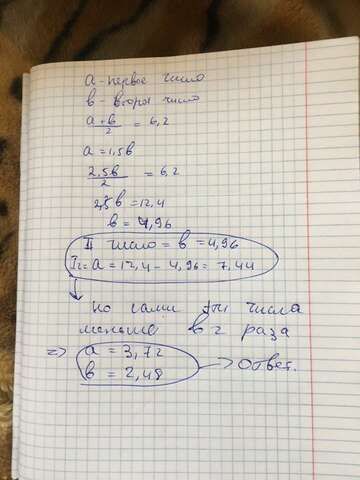 a - первое число
b - второе число
a + b / 2 = 6,2
a = 1,5b
2,5b / 2 = 6,2
2,5b = 12,4
b = 4,96
II число = b = 4,96
I = a = 12,4 - 4,96 = 7,44
но сами эти числа
меньше в 2 раза
=> a = 3,72
b = 2,48 -> ответ.